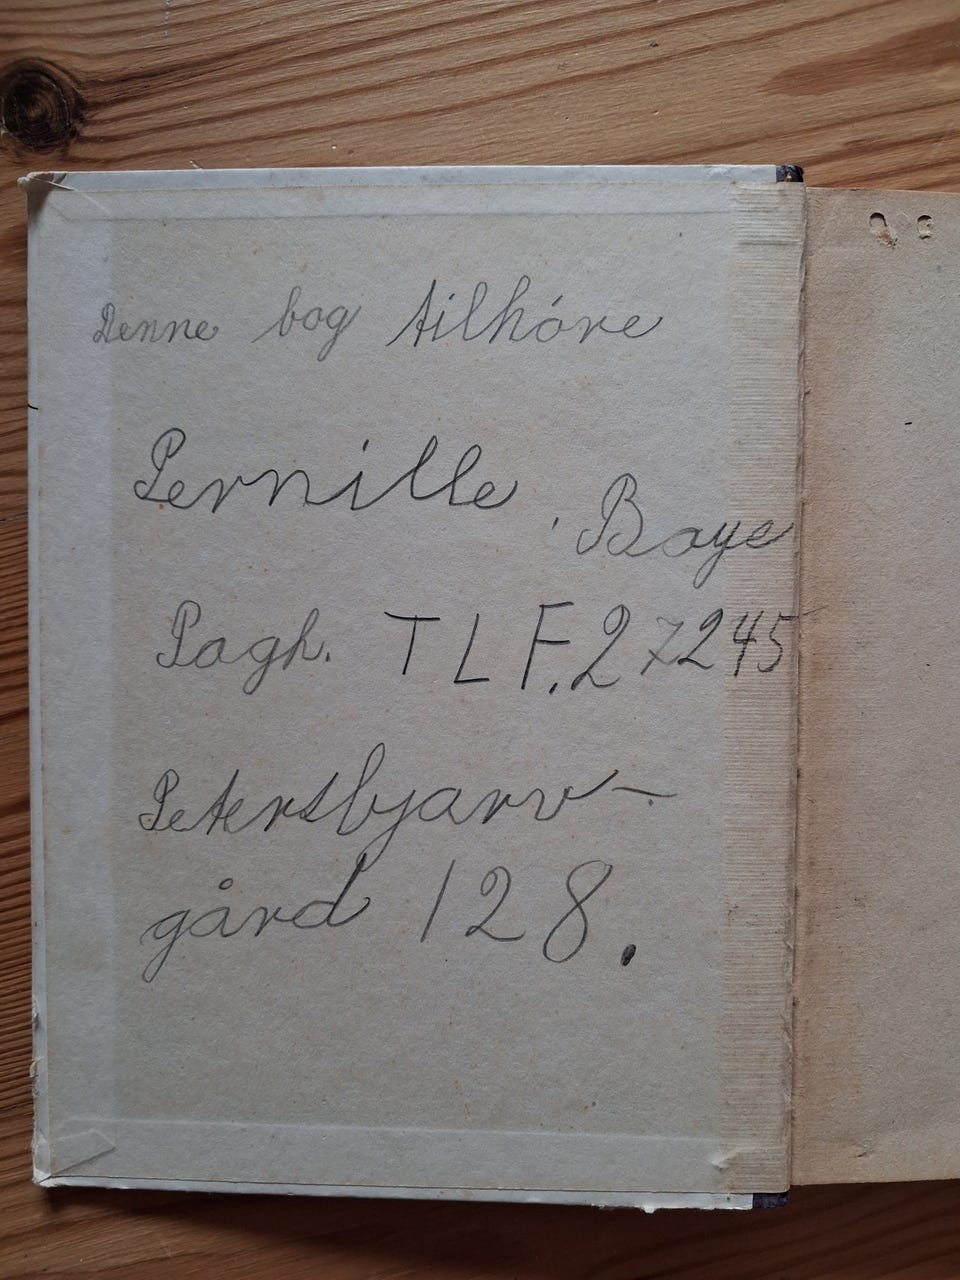 Denne bog tilhóre
Pernille Baye
Pagh. TLF. 27245
Petersbjarv-
gård 128.